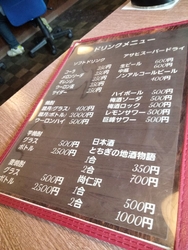 ドリンクメニュー
ソフトドリンク
コーラ
ウーロン茶
オレンジ
サイダー
250円
250円
250円
250円
アサヒスーパードライ
生ビール 600円
ノンアルコールビール
400円
焼酎
関舟(グラス) 400円
関舟(ボトル) 2000円
ウーロンハイ 500円
ハイボール 500円
梅酒ソーダ 500円
梅酒ロック 500円
レモンサワー 500円
巨峰サワー 500円
芋焼酎
グラス 500円
ボトル 2500円
麦焼酎
グラス 500円
ボトル 2500円
日本酒
とちぎの地酒物語
1合 350円
2合 700円
尚仁沢
1合 500円
2合 1000円